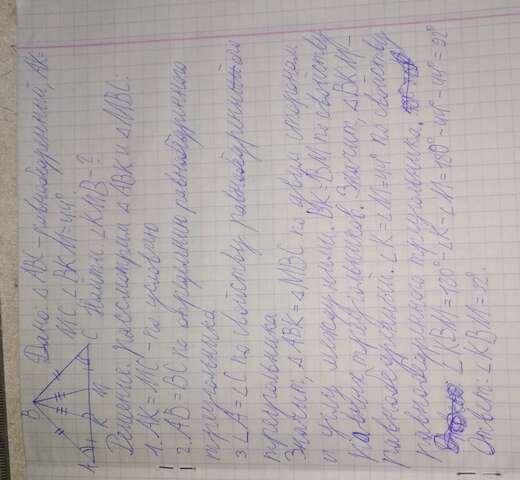 Дано: △ABC - равнобедренный, AK=
MC, ∠BKM=44°.
Найти: ∠KMB-?
B
A
K
M
C
Решение: Рассмотрим △ABK и △MBC:
1. AK=MC - по условию
2. AB=BC по определению равнобедренного
треугольника
3. ∠A=∠C по свойству равнобедренного
треугольника
Значит, △ABK=△MBC по двум сторонам
и углу между ними. BK=BM по свойству
равных треугольников. Значит, △BKM -
равнобедренный. ∠K=∠M=44° по свойству
равнобедренного треугольника.
∠KBM=180°-∠K-∠M=180°-44°-44°=92°
Ответ: ∠KBM=92°.